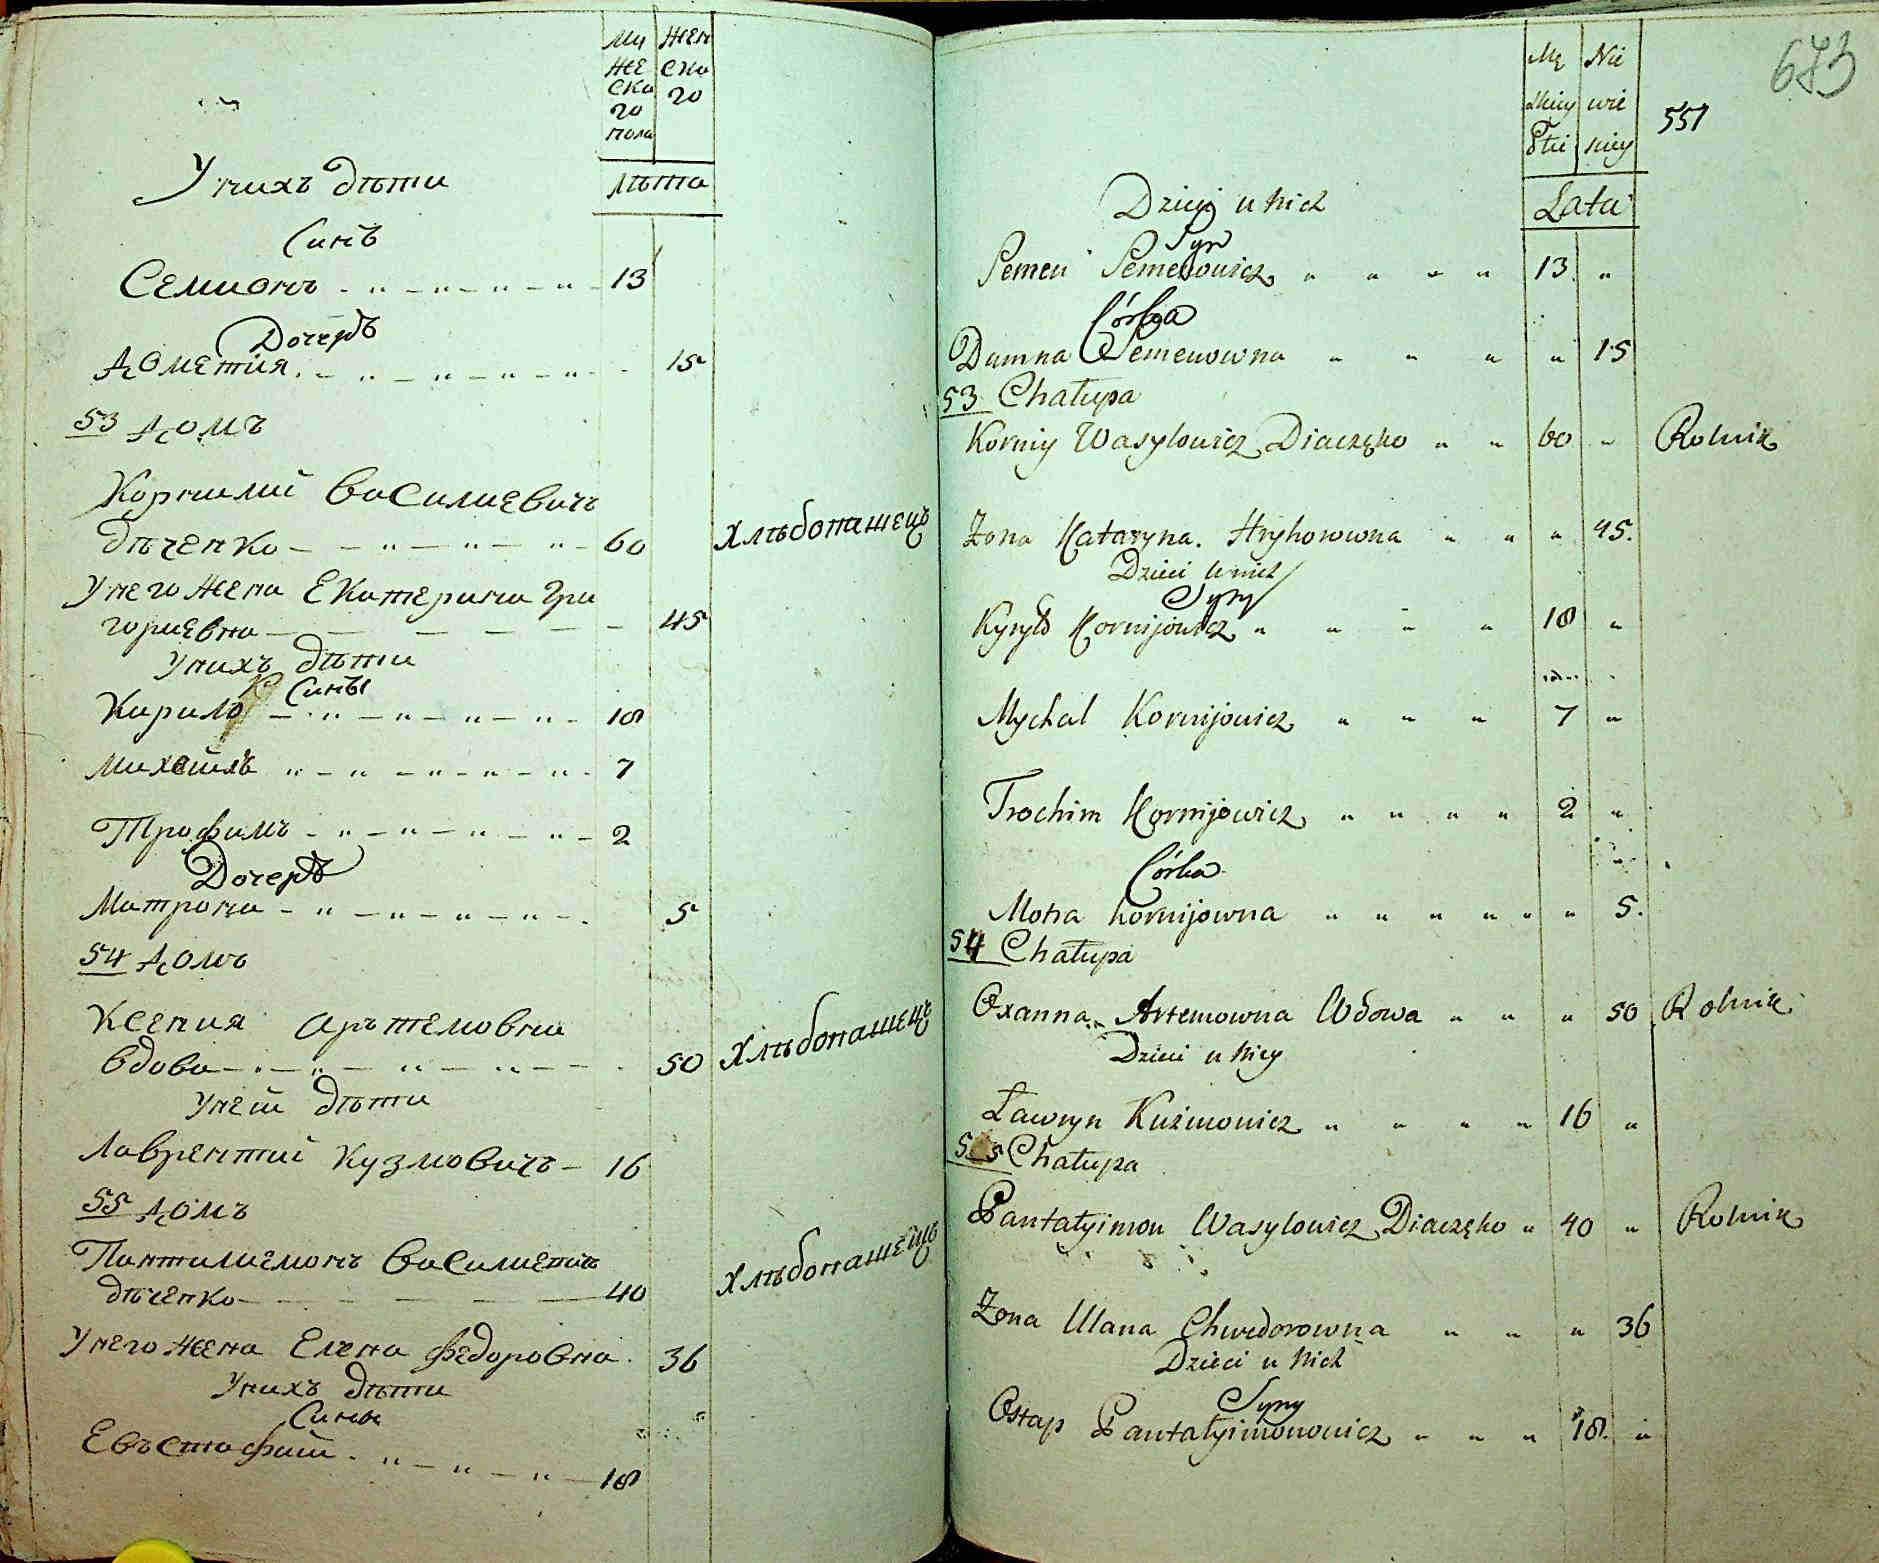 Му
же
ско
го
пола
жен
ско
го
лѣта
У нихъ дѣти
Синъ
Семионъ 13
Дочерь
Дометия 15
53 Домъ
Корнилий Василиевичъ
дѣченко 60 хлѣбопашецъ
У него жена Екатерина Гри
гориевна 45
У нихъ дѣти
Сины
Кирило 18
Михаилъ 7
Трофимъ 2
Дочерь
Матрона 5
54 Домъ
Ксения Артемовна
вдова 50 хлѣбопашецъ
У ней дѣти
Лаврентий Кузмовичъ 16
55 Домъ
Пантилиемонъ Василиевичъ
дѣченко 40 хлѣбопашецъ
У него жена Елена Федоровна 36
У нихъ дѣти
Сины
Евъстафий 18
673
551
Mę
zkiey
Płci
Nie
wie
skiey
Lata
Dzieci u nich
Syn
Semen Semenowicz 13
Córka
Dumna Semenowna 15
53 Chałupa
Korniy Wasylowicz Diaczęko 60 Rolnik
Żona Kataryna Hryhorowna 45
Dzieci u nich
Syny
Kyryło Kornijowicz 18
Mychal Kornijowicz 7
Trochim Kornijowicz 2
Córka
Motra Kornijowna 5
54 Chałupa
Oxanna Artemowna Wdowa 50 Rolnik
Dzieci u niey
Ławryn Kuźmowicz 16
55 Chałupa
Pantałyimon Wasylowicz Diaczęko 40 Rolnik
Żona Ulana Chwedorowna 36
Dzieci u nich
Syny
Ostap Pantałyimonowicz 18